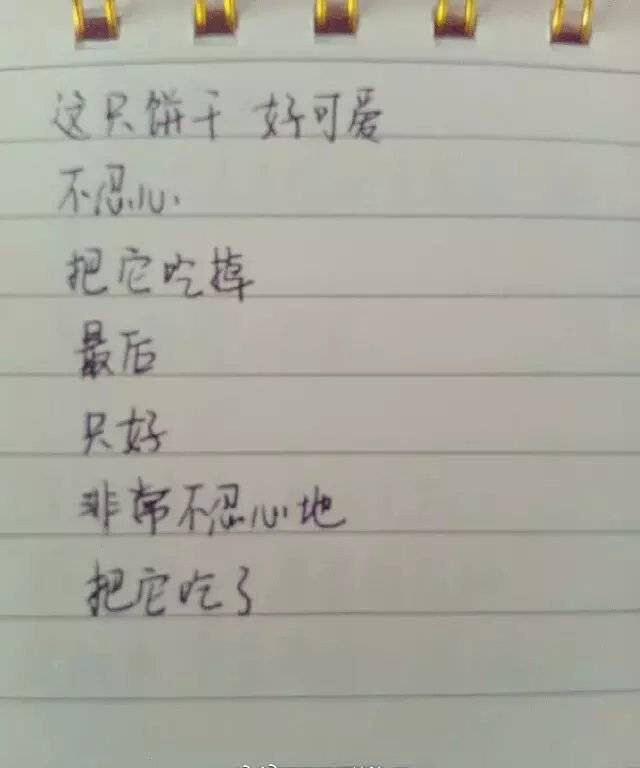 这只饼干 好可爱
不忍心
把它吃掉
最后
只好
非常不忍心地
把它吃了